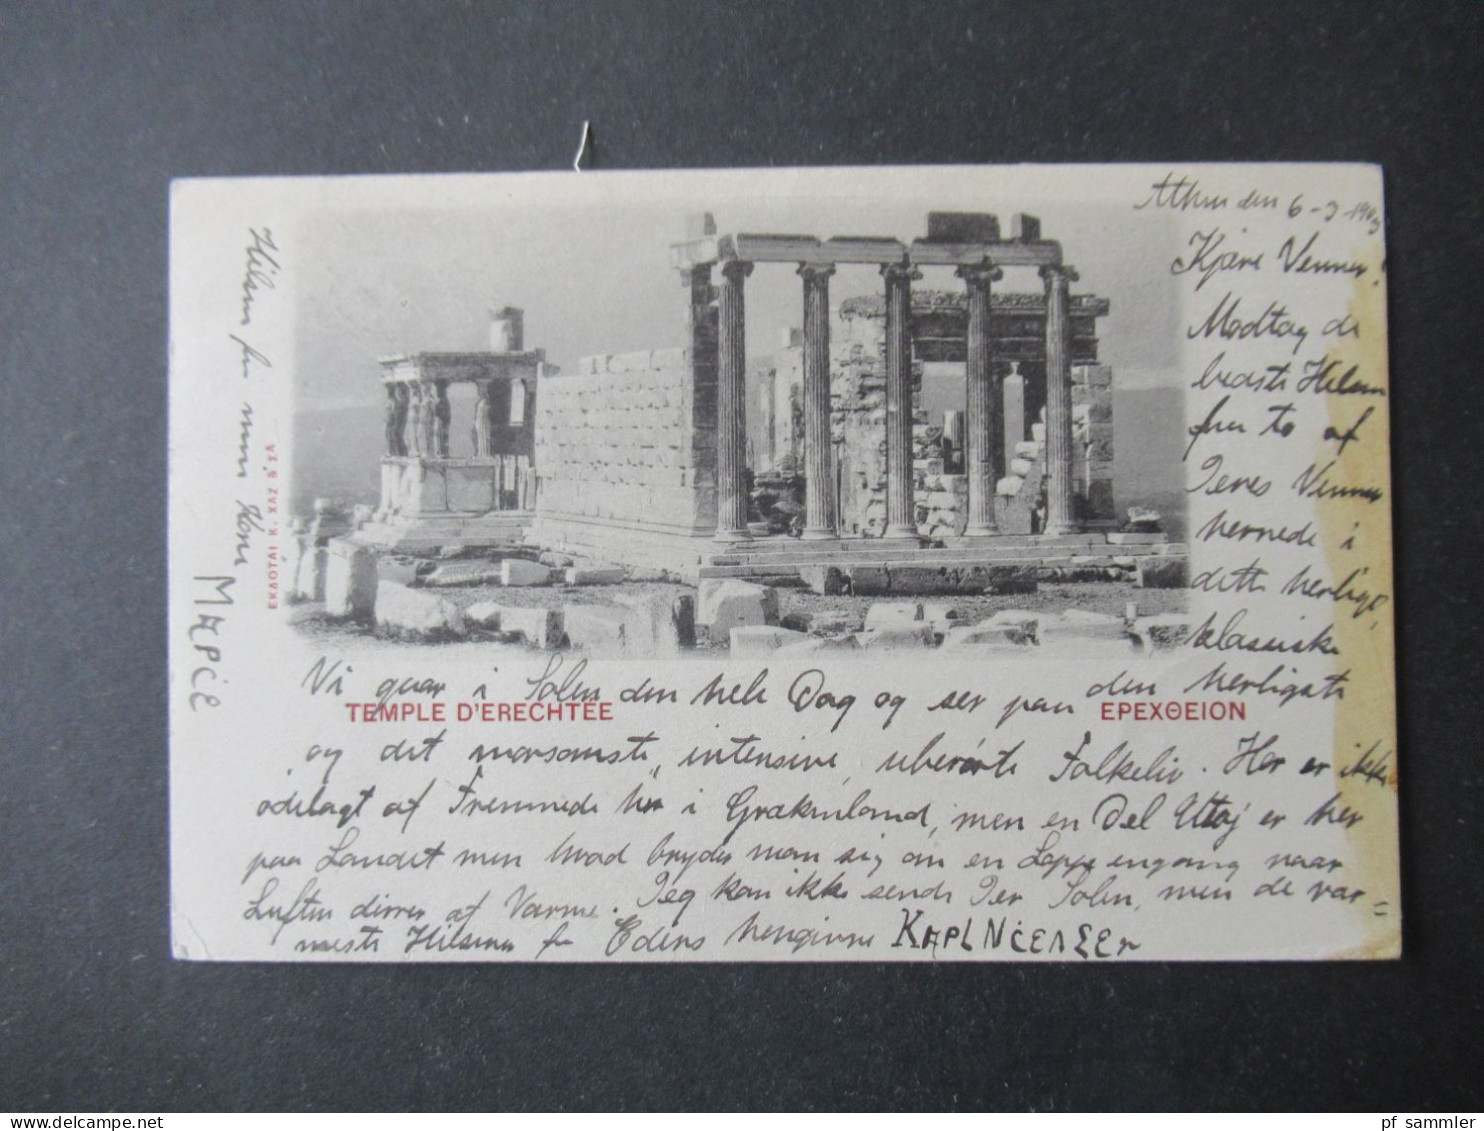 Athen den 6-3-1903
Kjære Venner!
Modtag de
bedste Hilsen
fra to af
Jeres Venner
hernede i
dette herlige,
klassiske
Vi gaar i Solen den hele Dag og ser paa den herligste
TEMPLE D'ERECHTÉE
ΕΡΕΧΘΕΙΟΝ
og det morsomste, intensive, Folkeliv. Her er ikke
ödelagt af Fremmede her i Grækenland, men en Del Uttøj er her
paa Landet men hvad bryder man sig om en Loppe engang naar
Luften dirrer af Varme. Jeg kan ikke sende Jer Solen, men de var=
meste Hilsener fra Eders hengivne
Hilsen fra min Kone
ΕΚΔΟΤΑΙ Κ. ΧΑΖ Β^Σ ΣΑ
pf sammler
www.delcampe.net